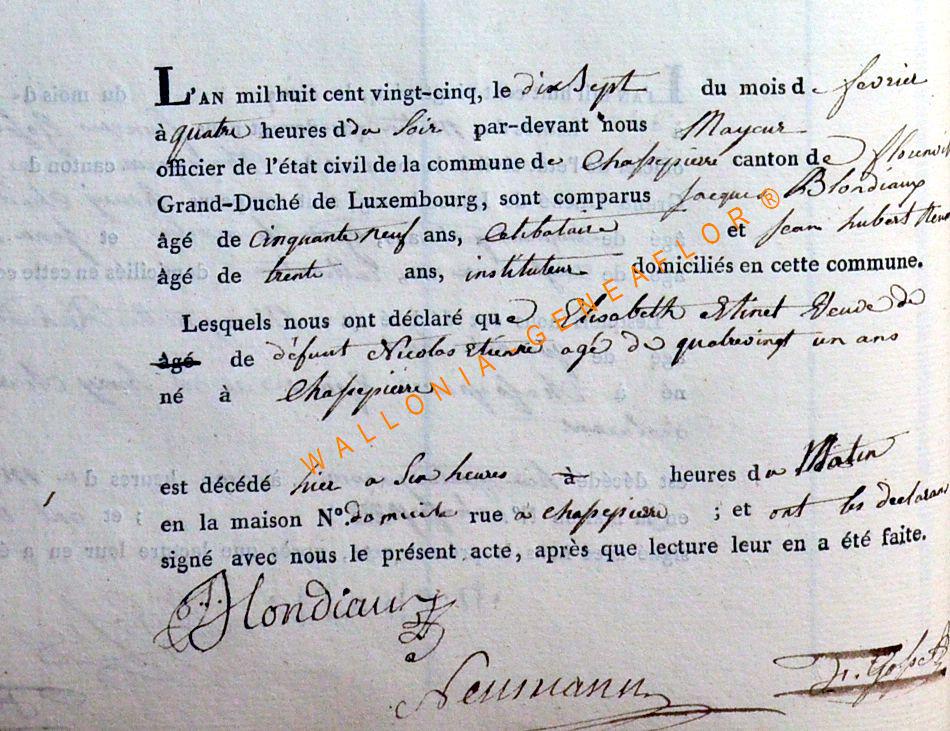 L'AN mil huit cent vingt-cinq, le dix Sept du mois de fevrier
à quatre heures d du Soir par-devant nous Mayeur
officier de l'état civil de la commune de Chassepierre canton de
Grand-Duché de Luxembourg, sont comparus Jacques Blondiaux
âgé de Cinquante neuf ans, Celibataire et jean hubert
âgé de trente ans, instituteur domiciliés en cette commune.
Lesquels nous ont déclaré que Elisabeth Veuve de
âgé de défunt Nicolas Etienne agé de quatrevingt un ans
né à Chassepierre
est décédé hier a Six heures à heures d u Matin
en la maison N°. domicile rue a chassepierre ; et ont les declarans
signé avec nous le présent acte, après que lecture leur en a été faite.
Blondiaux
Neumann
WALLONIA GENEAFLOR ®